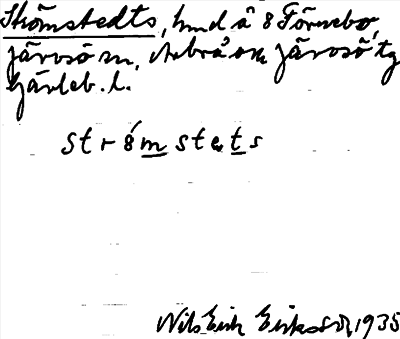 Strömstedts, hmd å 8 Förnebo,
Järvsö sn, Arbrå och Järvsö tg
Gävleb. l.
str ǿm stets
Nils Erik Eriksson, 1935